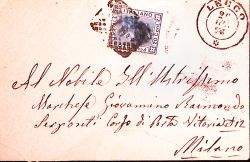 LECCO
Al Nobile Ill'Ustrissimo
Marchese Giovannino Raimondo
Corso di Porta Vittoria N 12
Milano